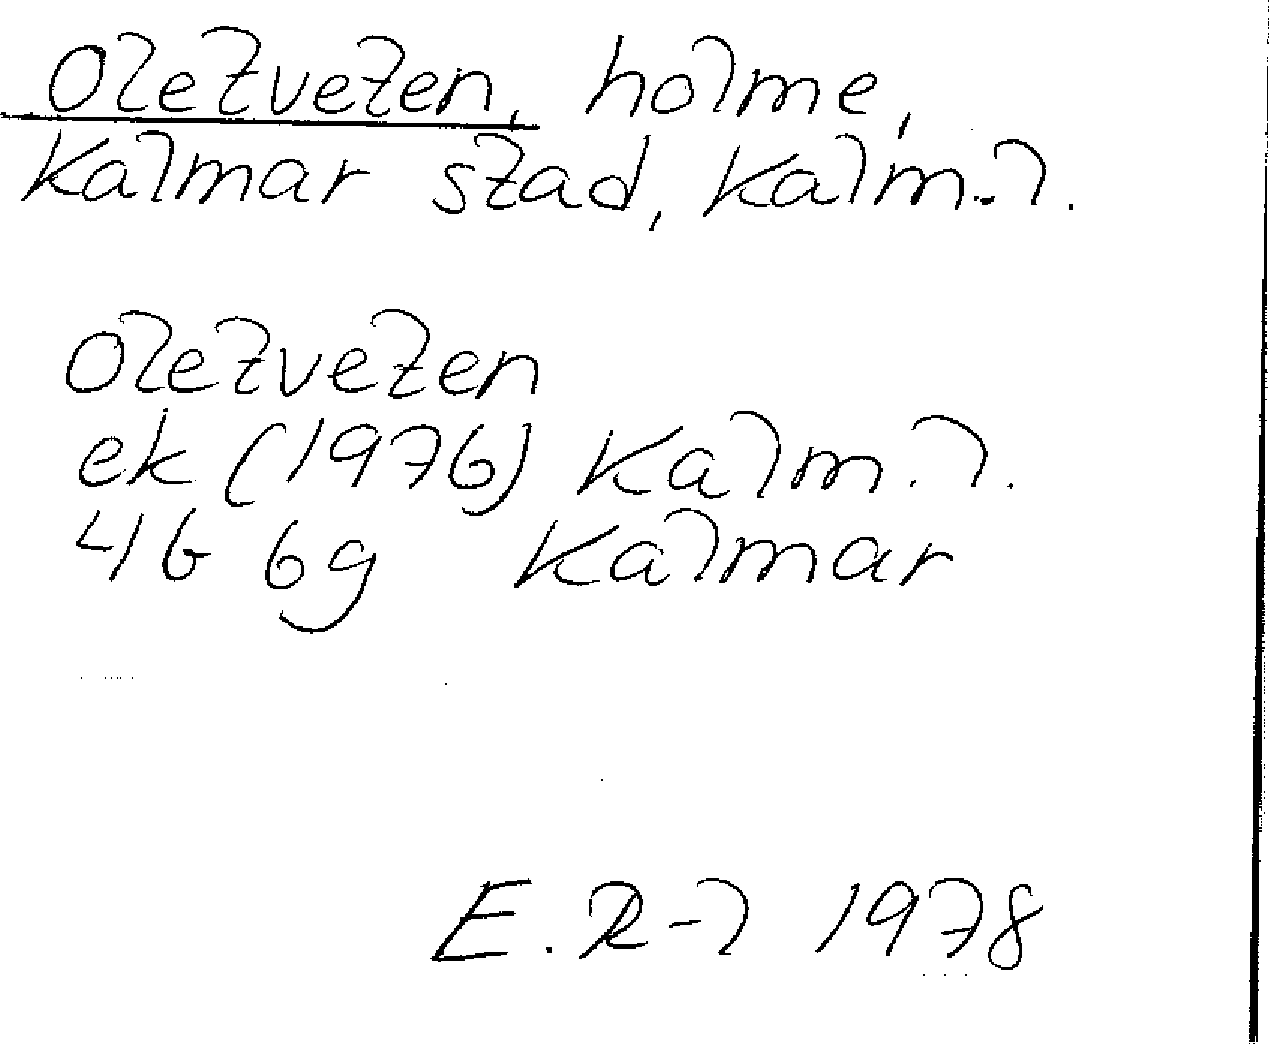 Oletveten, holme,
Kalmar stad, Kalm. l.
Oletveten
ek (1976) Kalm. l.
4G 6g Kalmar
E. R-l 1978